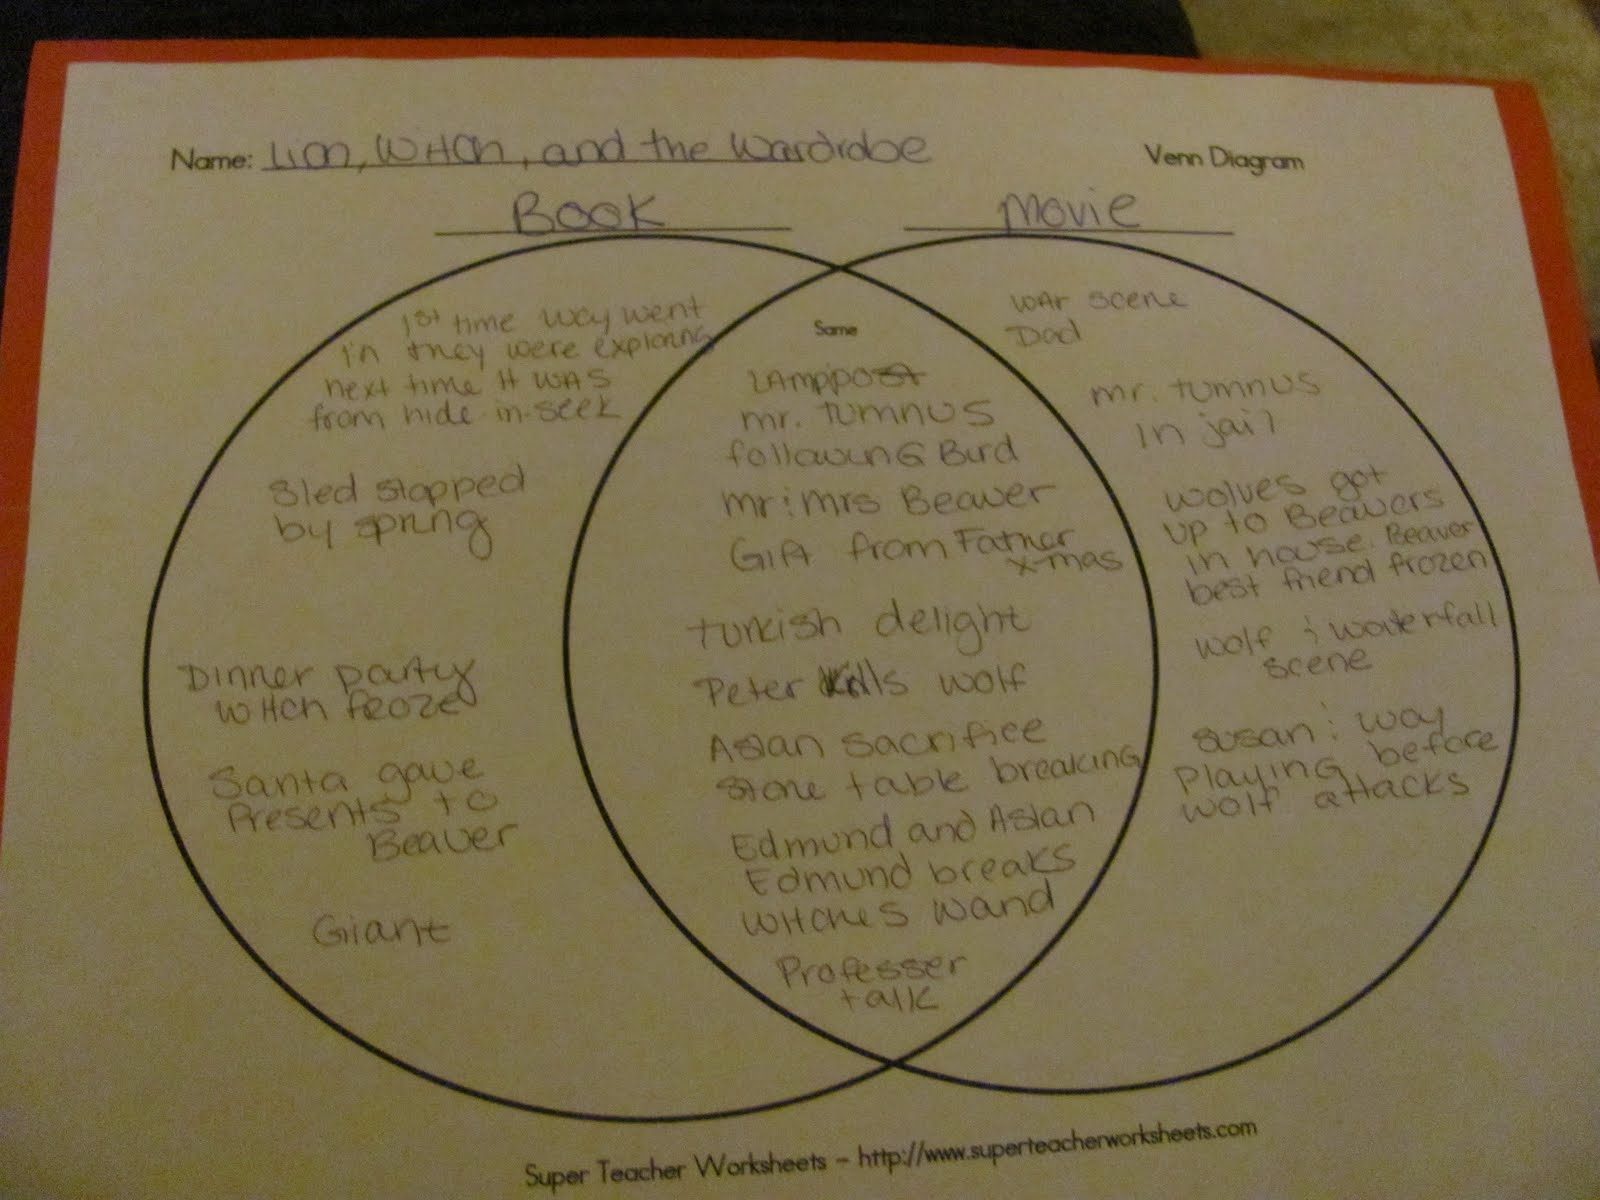 Name: Lion, Witch, and the Wardrobe
Venn Diagram
Book
Movie
1st time way went
in they were exploring
next time it was
from hide-in-seek
Sled stopped
by spring
Dinner party
witch froze
Santa gave
Presents to
Beaver
Giant
Same
Lamppost
mr. Tumnus
following Bird
mr & mrs Beaver
Gift from Father
x-mas
turkish delight
Peter kills wolf
Aslan sacrifice
stone table breaking
Edmund and Aslan
Edmund breaks
witches wand
Professer
talk
war scene
Dad
mr. tumnus
in jail
wolves got
up to Beavers
in house. Beaver
best friend frozen
wolf & waterfall
scene
susan & way
Playing before
wolf attacks
Super Teacher Worksheets - http://www.superteacherworksheets.com